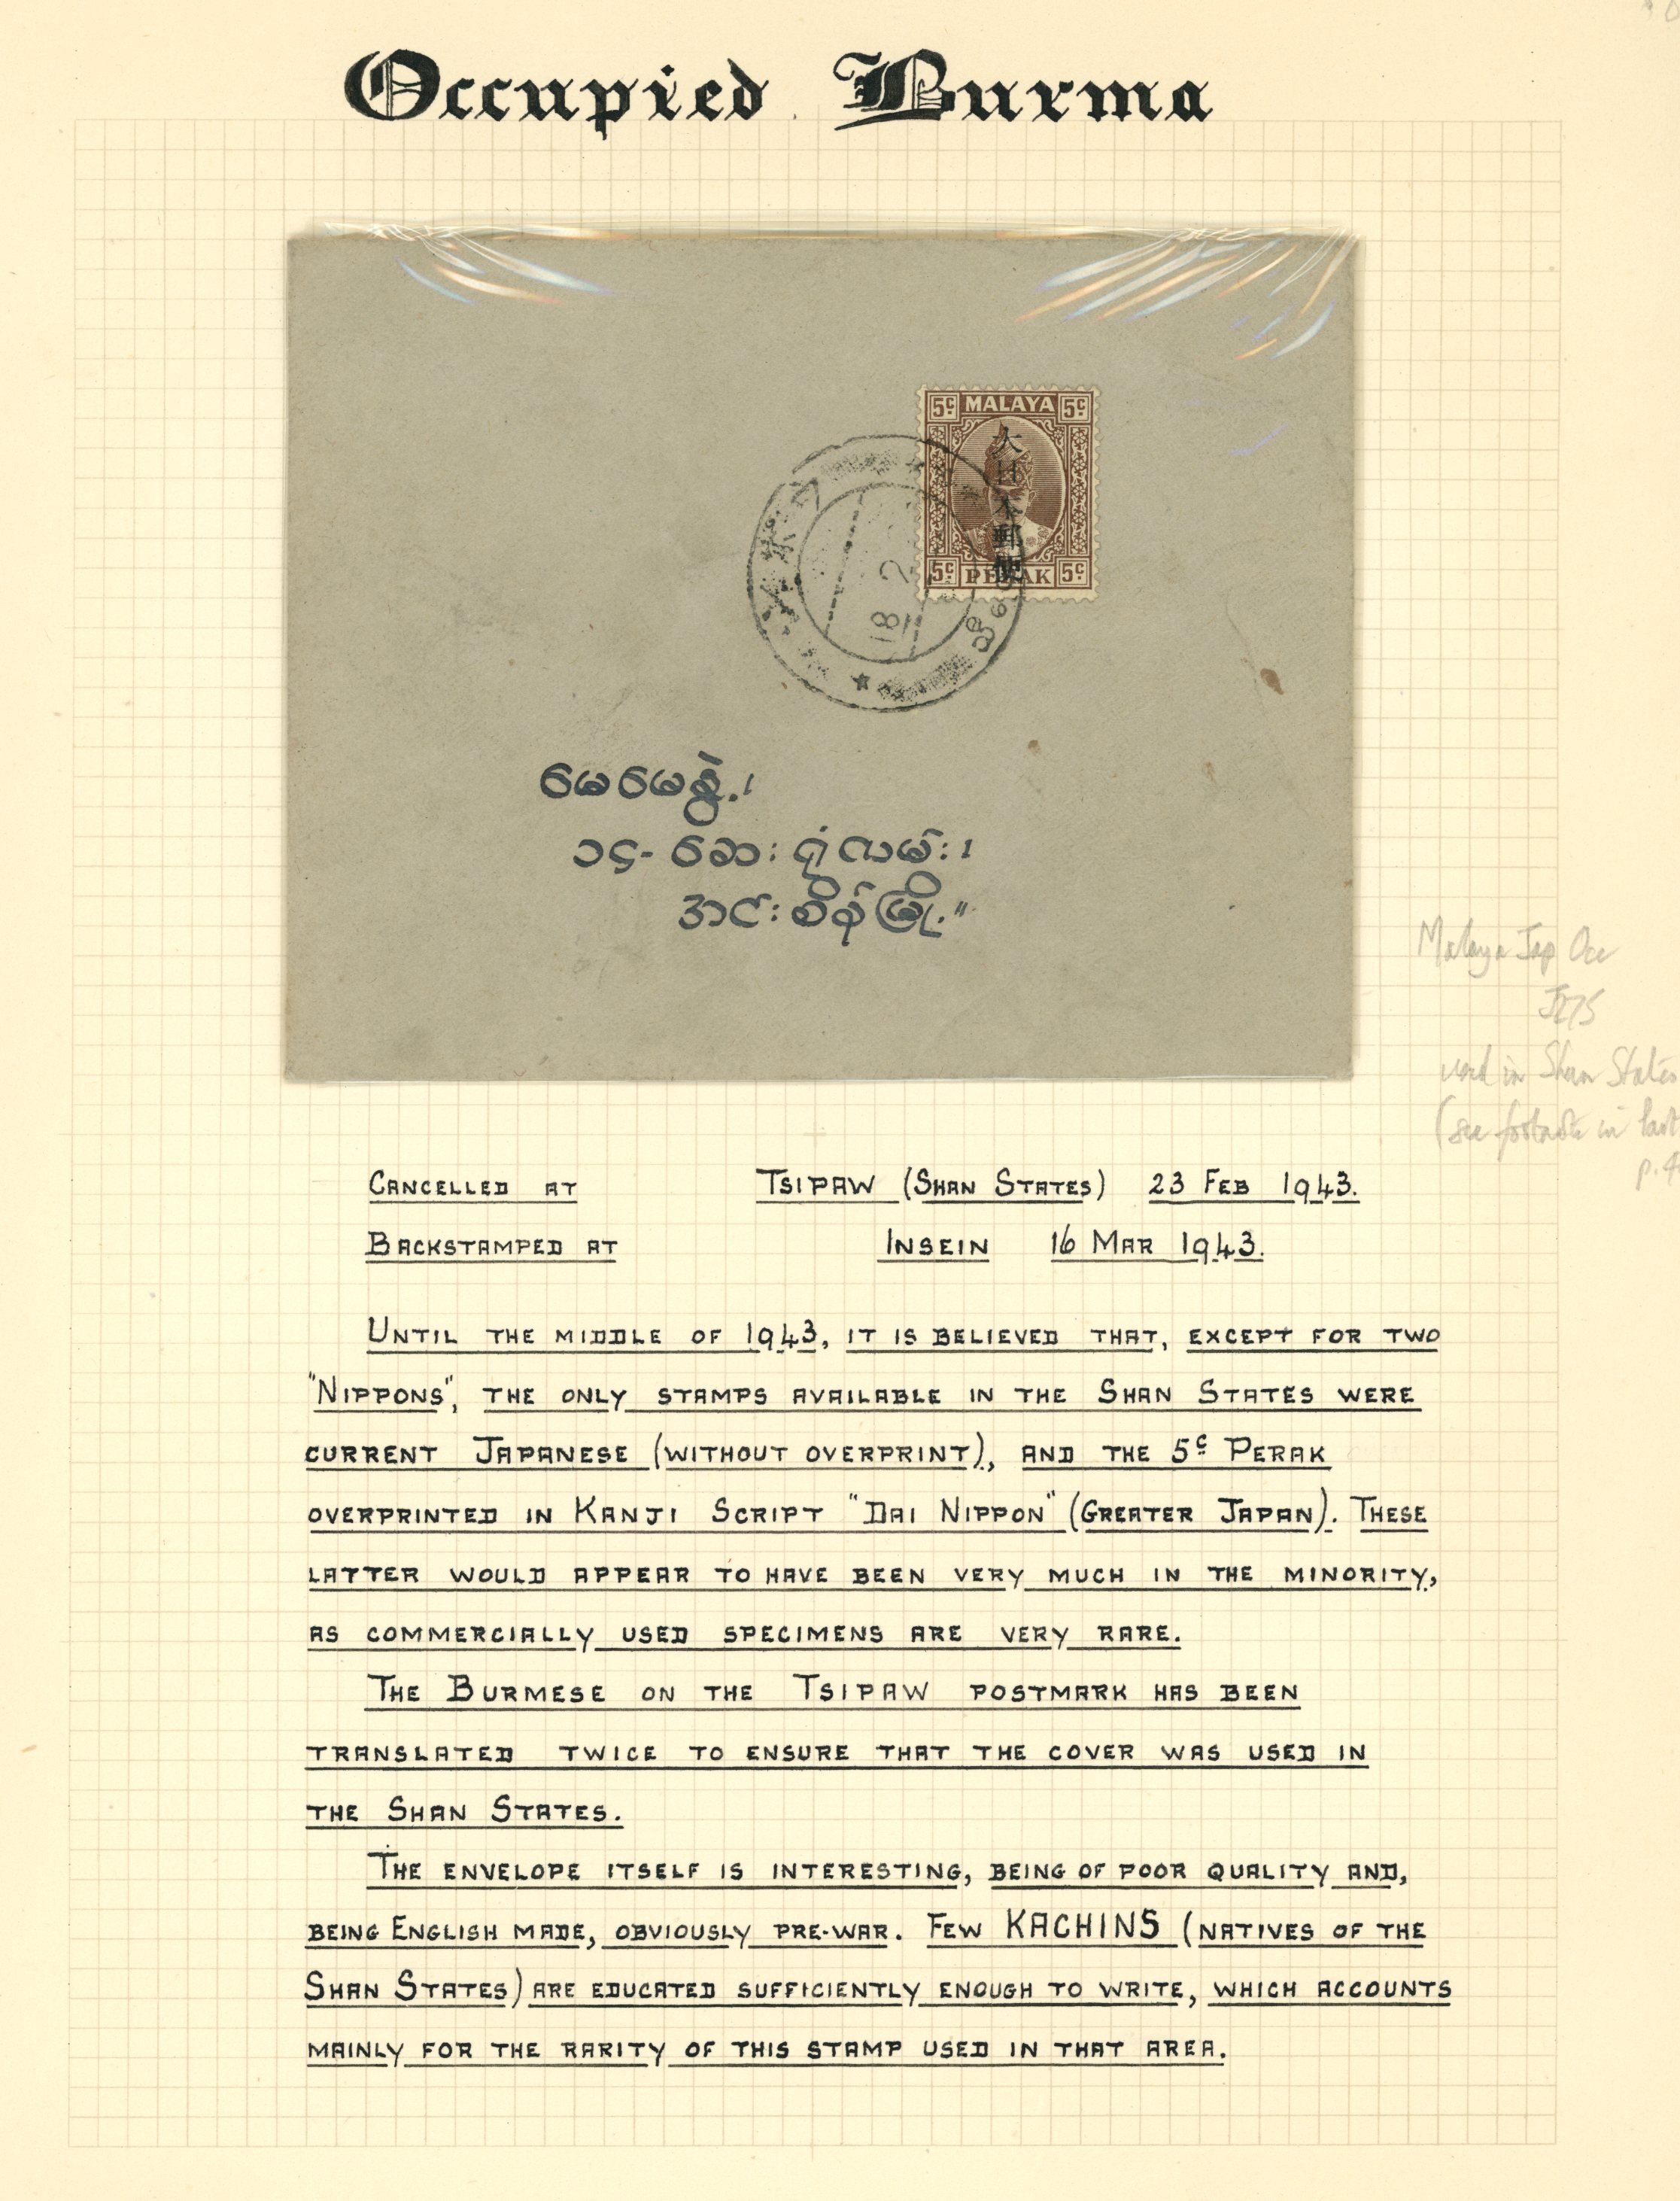 Occupied Burma
5c MALAYA 5c
大日本郵便
5c PERAK 5c
18 2
မေမေနွဲ့၊
၁၄- ဆေးရုံလမ်း၊
အင်းစိန်မြို့။
Malaya Jap Occ
J275
used in Shan States
(see footnote in last
CANCELLED AT TSIPAW (SHAN STATES) 23 FEB 1943.
BACKSTAMPED AT INSEIN 16 MAR 1943.
UNTIL THE MIDDLE OF 1943, IT IS BELIEVED THAT, EXCEPT FOR TWO
"NIPPONS", THE ONLY STAMPS AVAILABLE IN THE SHAN STATES WERE
CURRENT JAPANESE (WITHOUT OVERPRINT), AND THE 5c PERAK
OVERPRINTED IN KANJI SCRIPT "DAI NIPPON" (GREATER JAPAN). THESE
LATTER WOULD APPEAR TO HAVE BEEN VERY MUCH IN THE MINORITY,
AS COMMERCIALLY USED SPECIMENS ARE VERY RARE.
THE BURMESE ON THE TSIPAW POSTMARK HAS BEEN
TRANSLATED TWICE TO ENSURE THAT THE COVER WAS USED IN
THE SHAN STATES.
THE ENVELOPE ITSELF IS INTERESTING, BEING OF POOR QUALITY AND,
BEING ENGLISH MADE, OBVIOUSLY PRE-WAR. FEW KACHINS (NATIVES OF THE
SHAN STATES) ARE EDUCATED SUFFICIENTLY ENOUGH TO WRITE, WHICH ACCOUNTS
MAINLY FOR THE RARITY OF THIS STAMP USED IN THAT AREA.